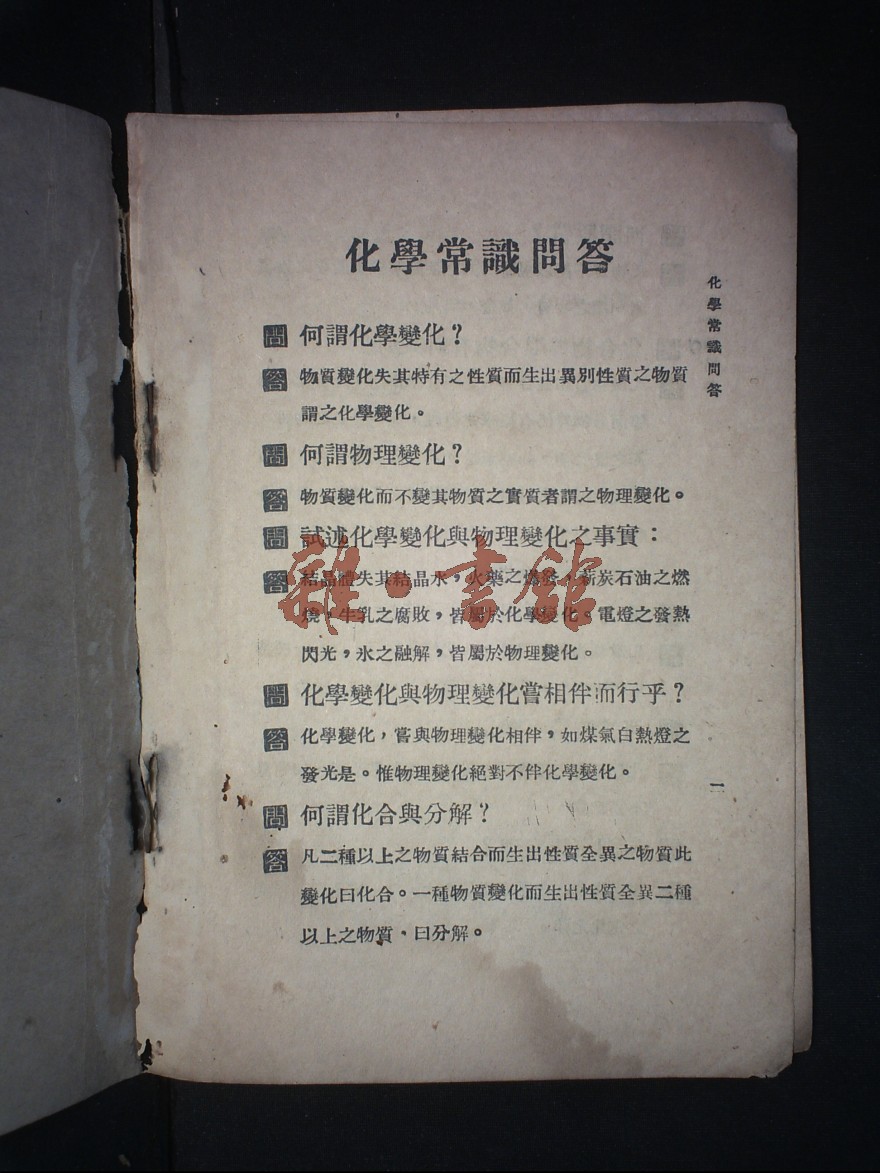 化學常識問答
問 何謂化學變化？
答 物質變化失其特有之性質而生出異別性質之物質
謂之化學變化。
問 何謂物理變化？
答 物質變化而不變其物質之實質者謂之物理變化。
問 試述化學變化與物理變化之事實：
答 結晶體失其結晶水，火藥之燃發，薪炭石油之燃
燒，牛乳之腐敗，皆屬於化學變化。電燈之發熱
閃光，氷之融解，皆屬於物理變化。
問 化學變化與物理變化嘗相伴而行乎？
答 化學變化，嘗與物理變化相伴，如煤氣白熱燈之
發光是。惟物理變化絕對不伴化學變化。
問 何謂化合與分解？
答 凡二種以上之物質結合而生出性質全異之物質此
變化曰化合。一種物質變化而生出性質全異二種
以上之物質，曰分解。
化學常識問答
雜·書館